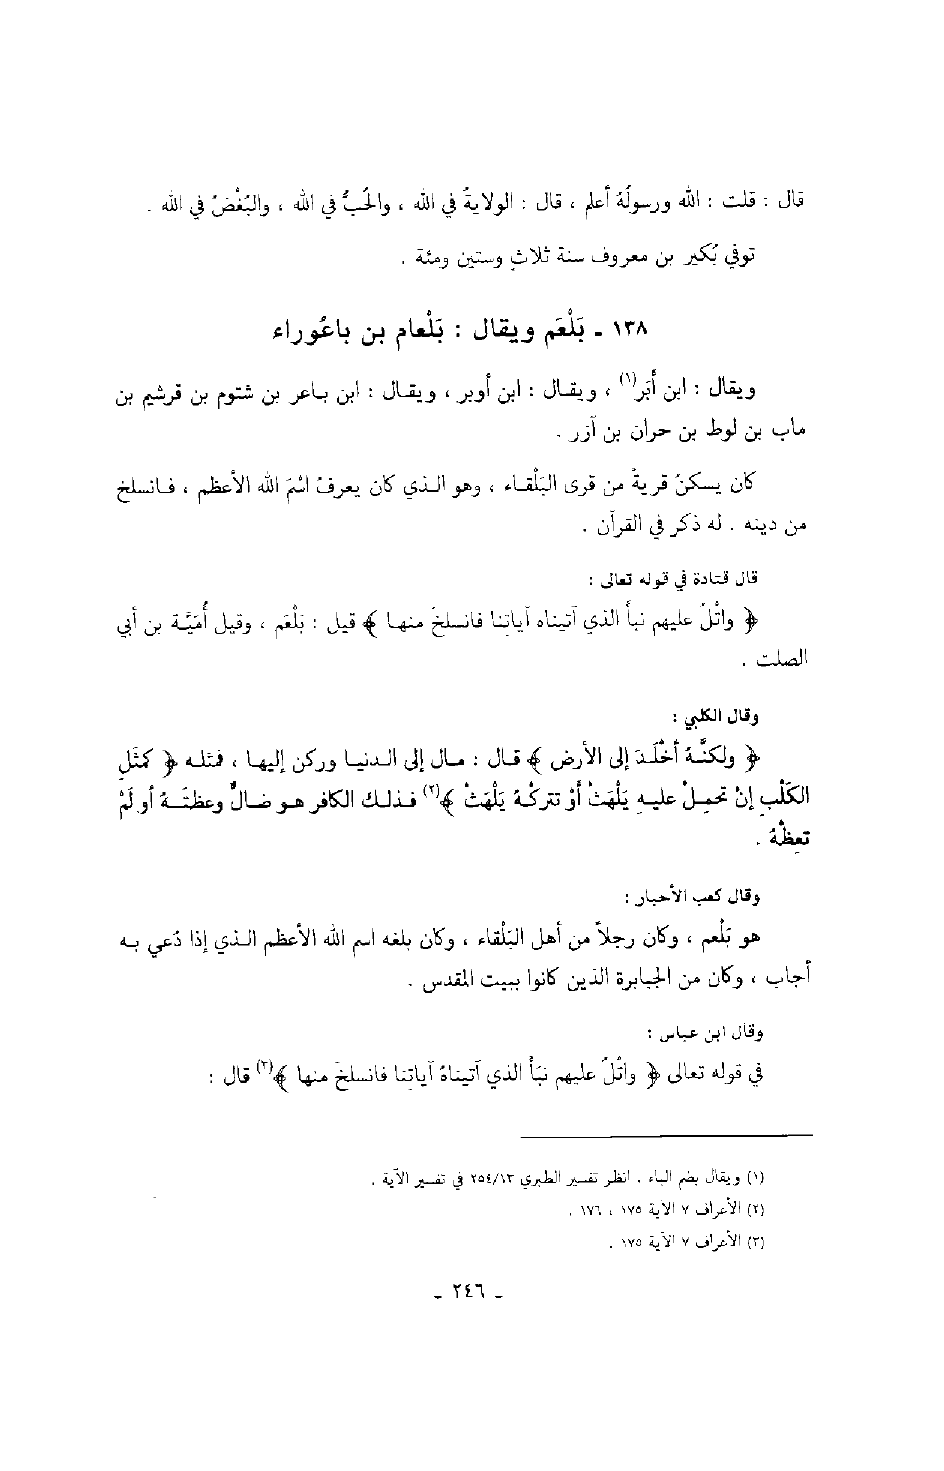 قال : قلت : الله ورسولُهُ أعلم ، قال : الولايةُ في الله ، والحُبُّ في الله ، والبُغْضُ في الله .
توفي بُكَير بن معروف سنة ثلاثٍ وستين ومئة .
١٣٨ ـ بَلْعَم ويقال : بَلْعام بن باعُوراء
ويقال : ابن أَبَر(١) ، ويقال : ابن أوبر ، ويقال : ابن باعر بن شتوم بن قرشيم بن
ماب بن لوط بن حران بن آزر .
كان يسكنُ قريةً من قرى البَلْقاء ، وهو الذي كان يعرفُ اسْمَ الله الأعظم ، فانسلخ
من دينه . له ذكر في القرآن .
قال قتادة في قوله تعالى :
﴿ واتْلُ عليهم نبأَ الذي آتيناه آياتِنا فانسلخَ منها ﴾ قيل : بَلْعَم ، وقيل أُمَيَّة بن أبي
الصلت .
وقال الكلبي :
﴿ ولكنَّهُ أَخْلَدَ إلى الأرض ﴾ قال : مال إلى الدنيا وركن إليها ، فمثله ﴿ كَمَثَلِ
الكَلْبِ إنْ تَحْمِلْ عليهِ يَلْهَثْ أوْ تتركْهُ يَلْهَثْ ﴾(٢) فذلك الكافر هو ضالٌّ وعظتَهُ أو لَمْ
تعِظْهُ .
وقال كعب الأحبار :
هو بَلْعم ، وكان رجلاً من أهل البَلْقاء ، وكان بلغه اسم الله الأعظم الذي إذا دُعي به
أجاب ، وكان من الجبابرة الذين كانوا ببيت المقدس .
وقال ابن عباس :
في قوله تعالى ﴿ واتْلُ عليهم نَبَأَ الذي آتيناهُ آياتنا فانسلخَ منها ﴾(٣) قال :
(١) ويقال بضم الباء . انظر تفسير الطبري ٢٥٤/١٣ في تفسير الآية .
(٢) الأعراف ٧ الآية ١٧٥ ، ١٧٦ .
(٣) الأعراف ٧ الآية ١٧٥ .
ـ ٢٤٦ ـ